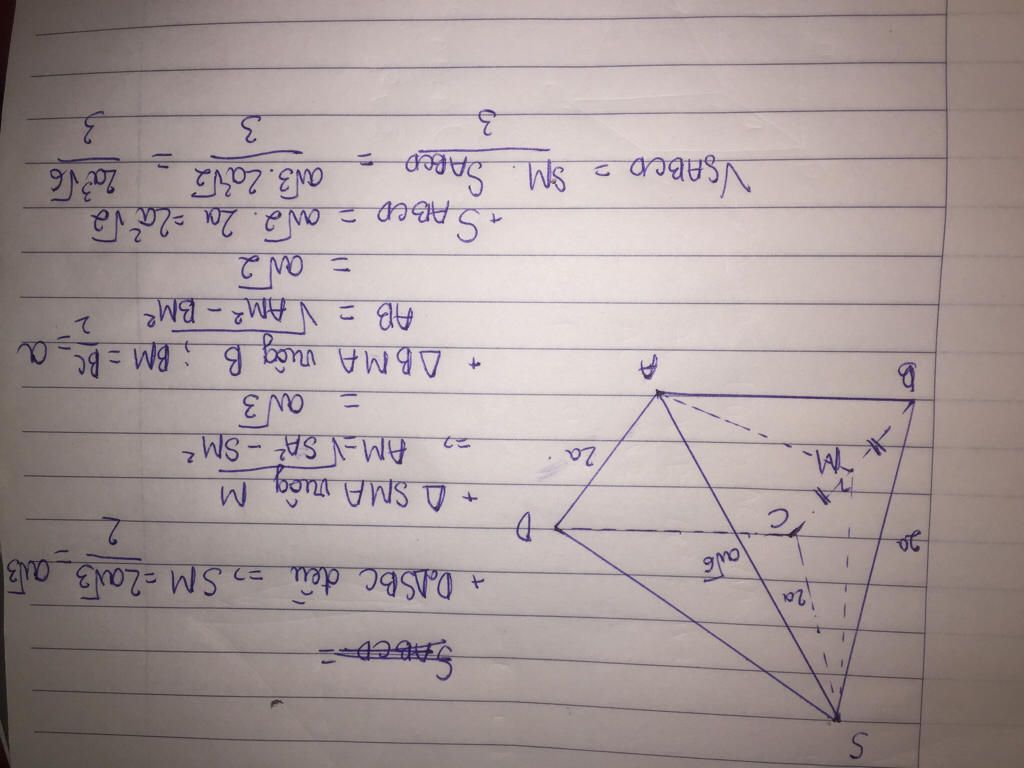 S
S̶A̶B̶C̶D̶ =
+ ΔSBC đều => SM = 2a√3/2 = a√3
+ Δ SMA vuôg M
=> AM = √SA² - SM²
= a√3
+ Δ BMA vuôg B ; BM = BC/2 = a
AB = √AM² - BM²
= a√2
+ S ABCD = a√2 . 2a = 2a²√2
VSABCD = SM . SABCD / 3 = a√3 . 2a²√2 / 3 = 2a³√6 / 3
2a
a√6
2a
C
D
M
2a
B
A